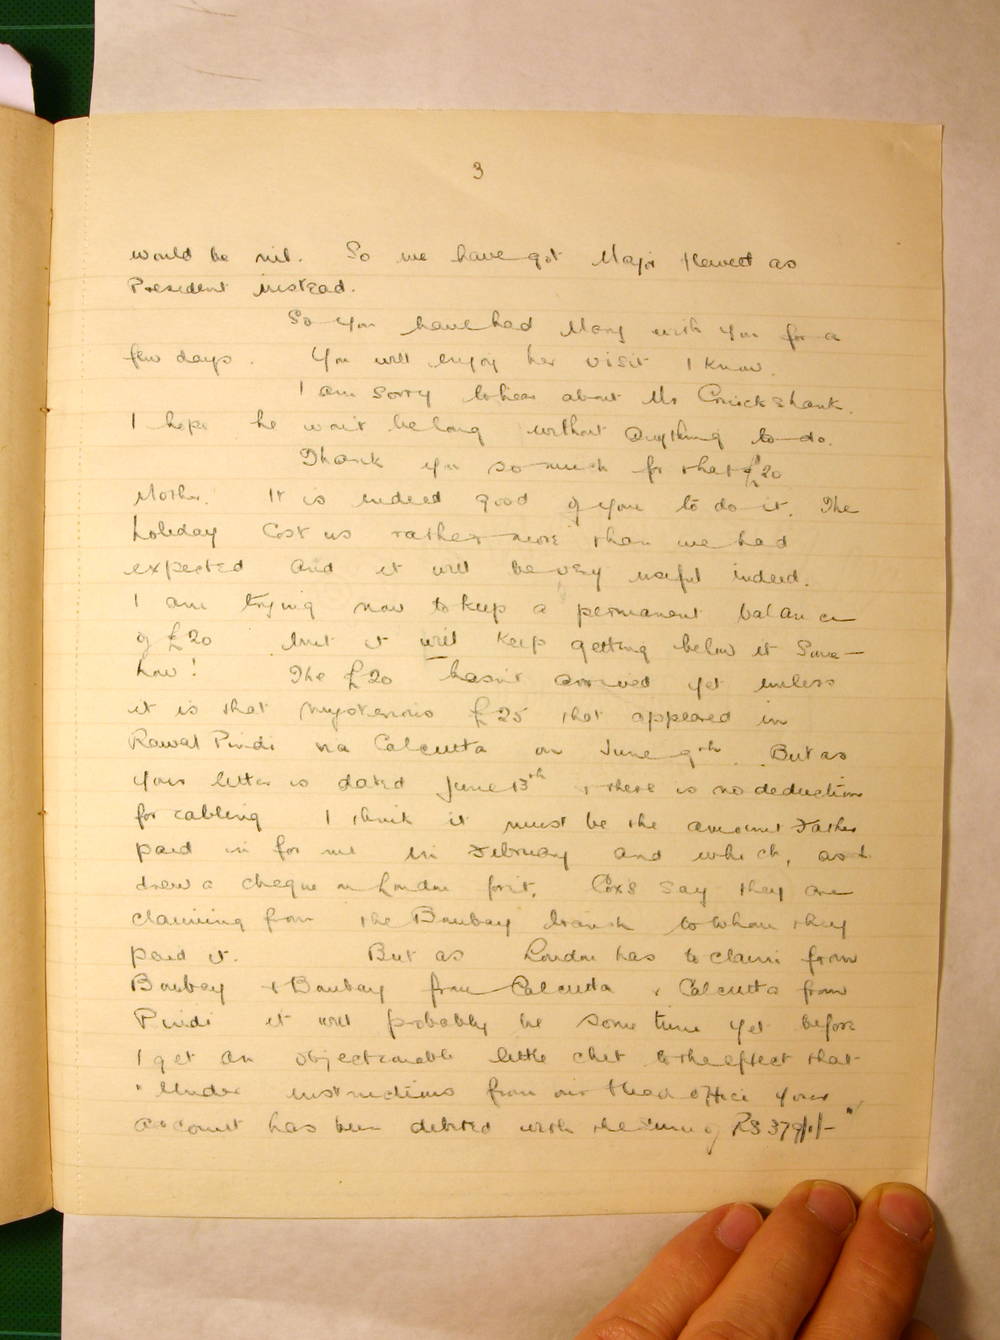 3
would be nil. So we have got Major Hewett as
President instead.
So you have had Mary with you for a
few days. You will enjoy her visit I know.
I am sorry to hear about Mr Cruickshank.
I hope he won't be long without anything to do.
Thank you so much for that £20
Mother. It is indeed good of you to do it. The
holiday cost us rather more than we had
expected and it will be very useful indeed.
I am trying now to keep a permanent balance
of £20 but it will keep getting below it some-
how! The £20 hasn't arrived yet unless
it is that mysterious £25 that appeared in
Rawal Pindi via Calcutta on June 9th. But as
your letter is dated June 13th & there is no deduction
for cabling I think it must be the amount Father
paid in for me in February and which, as I
drew a cheque on London for it, Cox's say they are
claiming from the Bombay branch to whom they
paid it. But as London has to claim from
Bombay & Bombay from Calcutta & Calcutta from
Pindi it will probably be some time yet before
I get an objectionable little chit to the effect that
"Under instructions from our Head Office your
account has been debited with the sum of Rs 379/1/-"